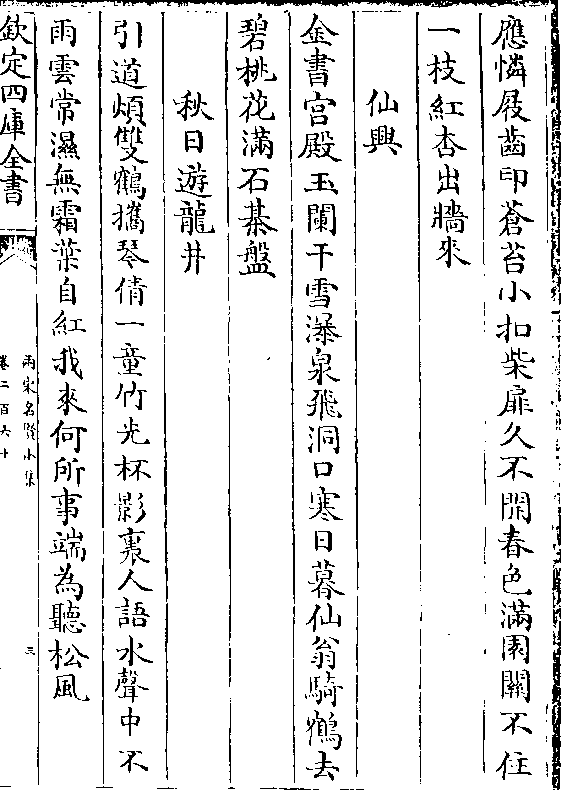 應憐屐齒印蒼苔小扣柴扉久不開春色滿園關不住
一枝紅杏出牆來
仙興
金書宫殿玉闌干雪瀑泉飛洞口寒日暮仙翁騎鶴去
碧桃花滿石棊盤
秋日遊龍井
引道煩雙鶴攜琴倩一童竹光杯影裏人語水聲中不
雨雲常濕無霜葉自紅我來何所事端為聽松風
欽定四庫全書
兩宋名賢小集
卷二百六十
三